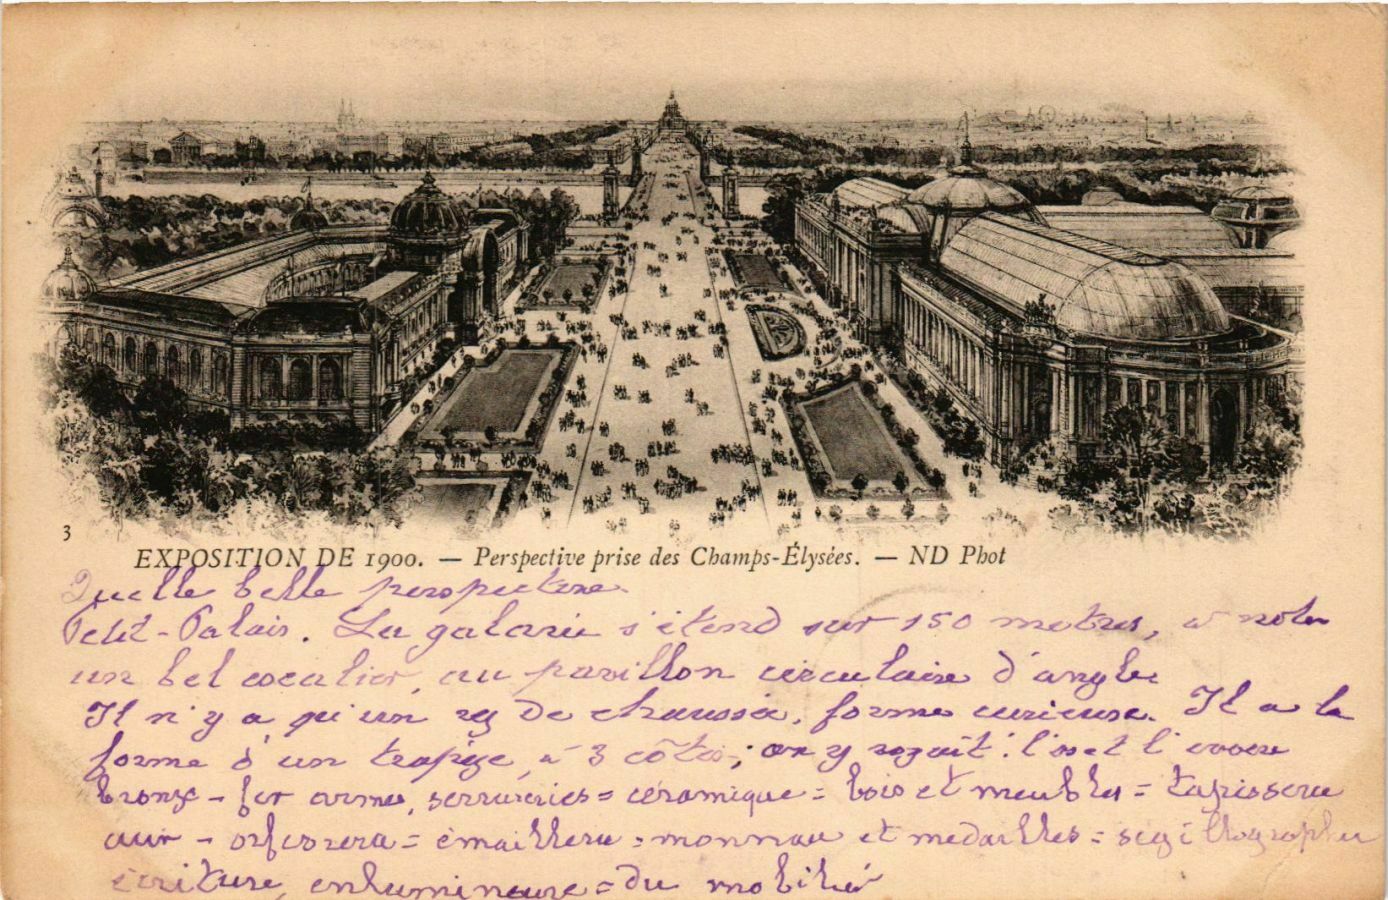 3
EXPOSITION DE 1900. — Perspective prise des Champs-Élysées. — ND Phot
Quelle belle perspective.
Petit-Palais. La galerie s'étend sur 150 metres, a noter
un bel escalier, au pavillon circulaire d'angle
Il n'y a qu'un rez de chaussée, forme curieuse. Il a la
forme d'un trapèze, à 3 côtés; on y voyait: l'os et l'ivoire
bronze - fer armes, serrureries = céramique = bois et meubles = tapisserie
cuir - orfevrerie = émaillerie = monnaie et medailles = sigillographie
écriture, enluminure = du mobilier